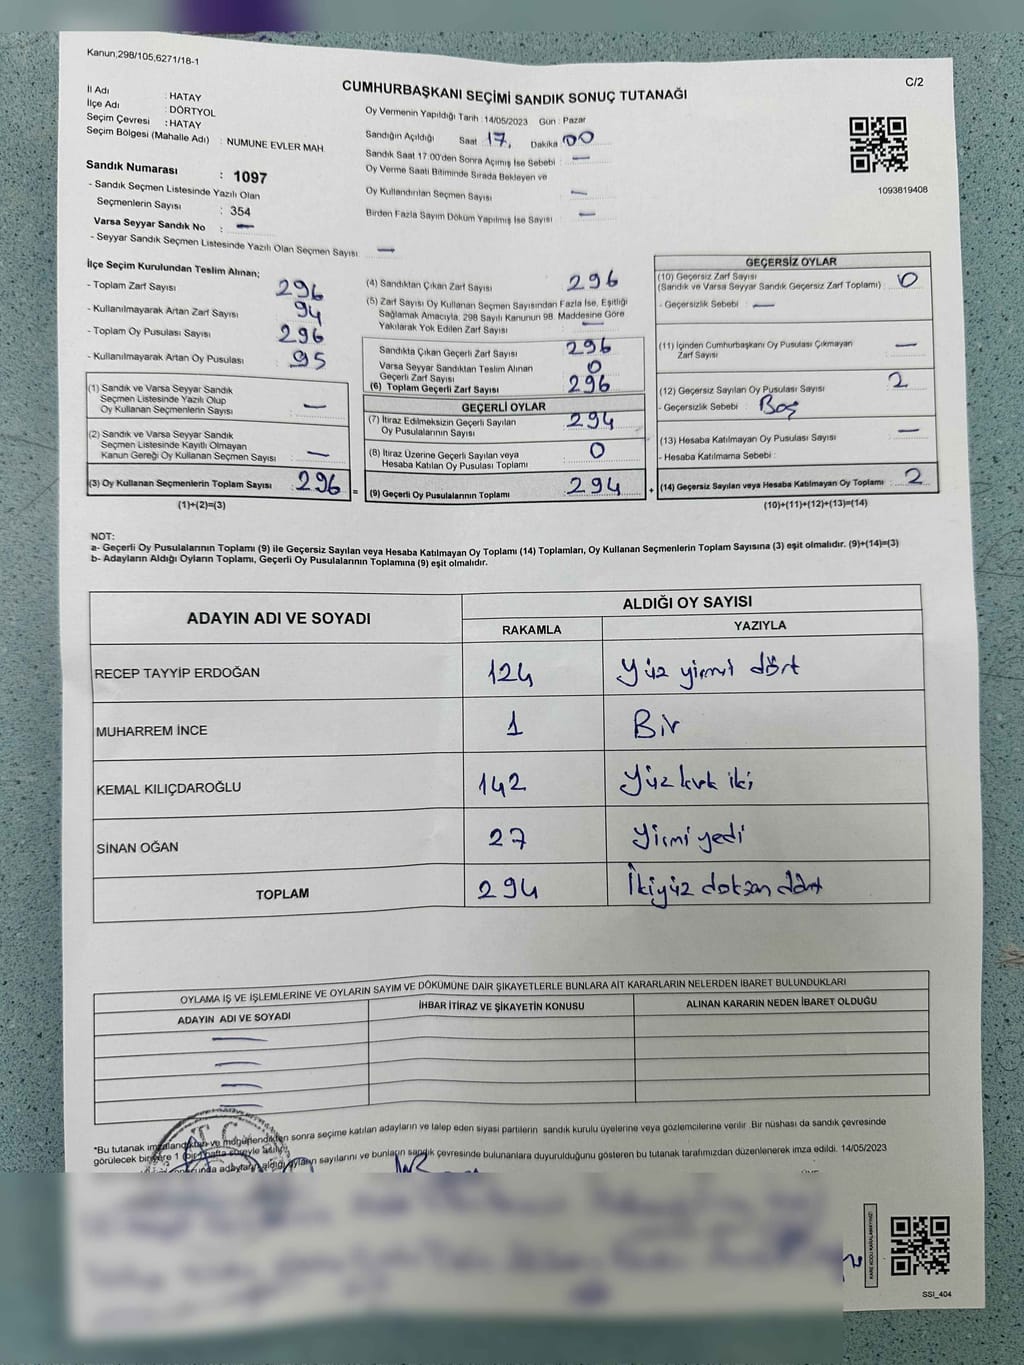 Kanun;298/105,6271/18-1
C/2
CUMHURBAŞKANI SEÇİMİ SANDIK SONUÇ TUTANAĞI
İl Adı : HATAY
İlçe Adı : DÖRTYOL
Seçim Çevresi : HATAY
Seçim Bölgesi (Mahalle Adı) : NUMUNE EVLER MAH.
Sandık Numarası : 1097
- Sandık Seçmen Listesinde Yazılı Olan
Seçmenlerin Sayısı : 354
Varsa Seyyar Sandık No : —
- Seyyar Sandık Seçmen Listesinde Yazılı Olan Seçmen Sayısı : —
Oy Vermenin Yapıldığı Tarih : 14/05/2023 Gün : Pazar
Sandığın Açıldığı Saat 17. Dakika 00
Sandık Saat 17:00'den Sonra Açımış İse Sebebi : —
Oy Verme Saati Bitiminde Sırada Bekleyen ve
Oy Kullandırılan Seçmen Sayısı : —
Birden Fazla Sayım Döküm Yapılmış İse Sayısı : —
1093819408
İlçe Seçim Kurulundan Teslim Alınan;
- Toplam Zarf Sayısı 296
- Kullanılmayarak Artan Zarf Sayısı 94
- Toplam Oy Pusulası Sayısı 296
- Kullanılmayarak Artan Oy Pusulası 95
(1) Sandık ve Varsa Seyyar Sandık
Seçmen Listesinde Yazılı Olup
Oy Kullanan Seçmenlerin Sayısı : —
(2) Sandık ve Varsa Seyyar Sandık
Seçmen Listesinde Kayıtlı Olmayan
Kanun Gereği Oy Kullanan Seçmen Sayısı : —
(3) Oy Kullanan Seçmenlerin Toplam Sayısı : 296 =
(1)+(2)=(3)
(4) Sandıktan Çıkan Zarf Sayısı 296
(5) Zarf Sayısı Oy Kullanan Seçmen Sayısından Fazla İse, Eşitliği
Sağlamak Amacıyla, 298 Sayılı Kanunun 98. Maddesine Göre
Yakılarak Yok Edilen Zarf Sayısı —
Sandıkta Çıkan Geçerli Zarf Sayısı 296
Varsa Seyyar Sandıktan Teslim Alınan
Geçerli Zarf Sayısı 0
(6) Toplam Geçerli Zarf Sayısı 296
GEÇERLİ OYLAR
(7) İtiraz Edilmeksizin Geçerli Sayılan
Oy Pusulalarının Sayısı 294
(8) İtiraz Üzerine Geçerli Sayılan veya
Hesaba Katılan Oy Pusulası Toplamı 0
(9) Geçerli Oy Pusulalarının Toplamı 294 +
GEÇERSİZ OYLAR
(10) Geçersiz Zarf Sayısı
(Sandık ve Varsa Seyyar Sandık Geçersiz Zarf Toplamı) : 0
- Geçersizlik Sebebi : —
(11) İçinden Cumhurbaşkanı Oy Pusulası Çıkmayan
Zarf Sayısı —
(12) Geçersiz Sayılan Oy Pusulası Sayısı 2
- Geçersizlik Sebebi : Boş
(13) Hesaba Katılmayan Oy Pusulası Sayısı —
- Hesaba Katılmama Sebebi :
(14) Geçersiz Sayılan veya Hesaba Katılmayan Oy Toplamı : 2
(10)+(11)+(12)+(13)=(14)
NOT:
a- Geçerli Oy Pusulalarının Toplamı (9) ile Geçersiz Sayılan veya Hesaba Katılmayan Oy Toplamı (14) Toplamları, Oy Kullanan Seçmenlerin Toplam Sayısına (3) eşit olmalıdır. (9)+(14)=(3)
b- Adayların Aldığı Oyların Toplamı, Geçerli Oy Pusulalarının Toplamına (9) eşit olmalıdır.
ADAYIN ADI VE SOYADI
ALDIĞI OY SAYISI
RAKAMLA YAZIYLA
RECEP TAYYİP ERDOĞAN 124 Yüz yirmi dört
MUHARREM İNCE 1 Bir
KEMAL KILIÇDAROĞLU 142 Yüz kırk iki
SİNAN OĞAN 27 Yirmi yedi
TOPLAM 294 İkiyüz doksan dört
OYLAMA İŞ VE İŞLEMLERİNE VE OYLARIN SAYIM VE DÖKÜMÜNE DAİR ŞİKAYETLERLE BUNLARA AİT KARARLARIN NELERDEN İBARET BULUNDUKLARI
ADAYIN ADI VE SOYADI
İHBAR İTİRAZ VE ŞİKAYETİN KONUSU
ALINAN KARARIN NEDEN İBARET OLDUĞU
—
—
—
—
T.C.
*Bu tutanak imzalandıktan ve mühürlendikten sonra seçime katılan adayların ve talep eden siyasi partilerin sandık kurulu üyelerine veya gözlemcilerine verilir. Bir nüshası da sandık çevresinde
görülecek bir yere 1 (bir) hafta süreyle asılır.
adayların aldığı oyların sayılarını ve bunların sandık çevresinde bulunanlara duyurulduğunu gösteren bu tutanak tarafımızdan düzenlenerek imza edildi. 14/05/2023
SSI_404